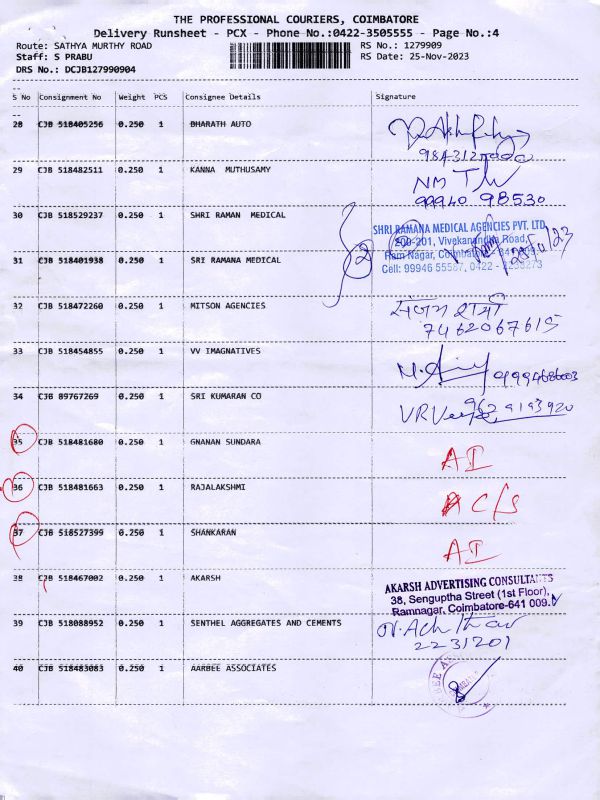 THE PROFESSIONAL COURIERS, COIMBATORE
Delivery Runsheet - PCX - Phone No.:0422-3505555 - Page No.:4
Route: SATHYA MURTHY ROAD RS No.: 1279909
Staff: S PRABU RS Date: 25-Nov-2023
DRS No.: DCJB127990904
S No Consignment No Weight PCS Consignee Details Signature
28 CJB 518405256 0.250 1 BHARATH AUTO
29 CJB 518482511 0.250 1 KANNA MUTHUSAMY NM
99940 98530
30 CJB 518529237 0.250 1 SHRI RAMAN MEDICAL
SHRI RAMANA MEDICAL AGENCIES PVT. LTD
200-201, Vivekanandha Road,
31 CJB 518401938 0.250 1 SRI RAMANA MEDICAL Ram Nagar,
Cell: 99946 55587, 0422 -
32 CJB 518472260 0.250 1 MITSON AGENCIES
7462067615
33 CJB 518454855 0.250 1 VV IMAGNATIVES
34 CJB 89767269 0.250 1 SRI KUMARAN CO 9629193920
35 CJB 518481680 0.250 1 GNANAN SUNDARA AI
36 CJB 518481663 0.250 1 RAJALAKSHMI C/S
37 CJB 518527399 0.250 1 SHANKARAN AI
38 CJB 518467002 0.250 1 AKARSH AKARSH ADVERTISING CONSULTANTS
38, Senguptha Street (1st Floor),
Ramnagar, Coimbatore-641 009.
39 CJB 518088952 0.250 1 SENTHEL AGGREGATES AND CEMENTS
2231201
40 CJB 518483083 0.250 1 AARBEE ASSOCIATES